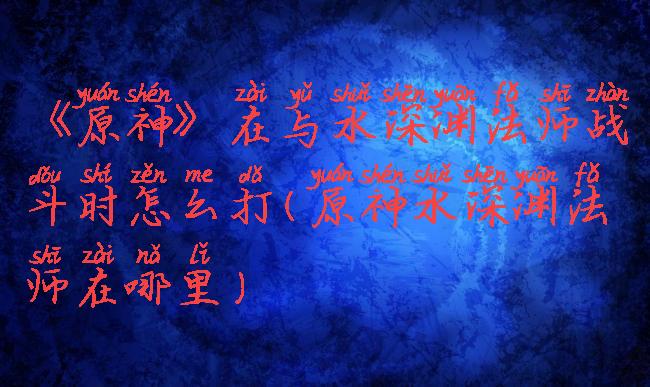 yuán shén zài yǔ shuǐ shēn yuān fǎ shī zhàn
《原神》在与水深渊法师战
dǒu shí zěn me dǒ yuán shén shuǐ shēn yuān fǎ
斗时怎么打(原神水深渊法
shī zài nǎ lǐ
师在哪里)